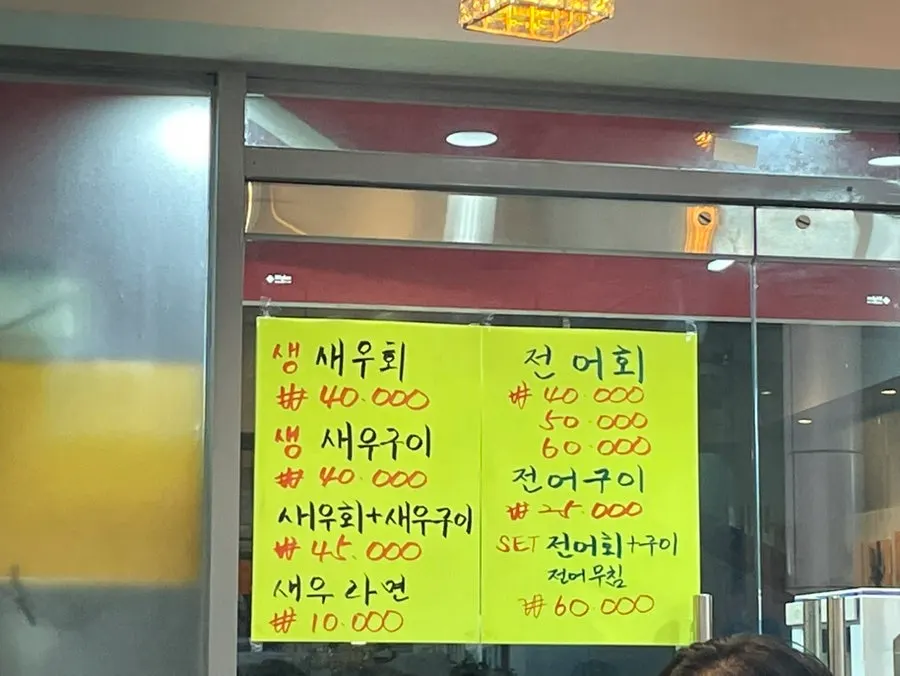 생 새우회
₩ 40.000
생 새우구이
₩ 40.000
새우회+새우구이
₩ 45.000
새우라면
₩ 10.000
전어회
₩ 40.000
50.000
60.000
전어구이
₩ 25.000
SET 전어회+구이
전어무침
₩ 60.000